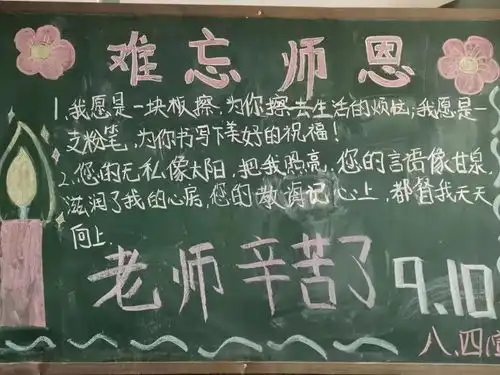 难忘师恩
1、我愿是一块板擦,为你擦去生活的烦恼;我愿是一
支粉笔,为你书写下美好的祝福!
2、您的无私像太阳,把我照亮,您的言语像甘泉,
滋润了我的心房,您的教诲记心上,都督我天天
向上.
老师辛苦了
9.10
八.四